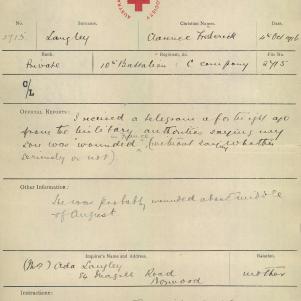 SOCIETY
No.
Surname.
Christian Names.
2715
Langley
Clarence Frederick
4th Oct 1916
Rank.
Regiment, &c.
File
Private
10th Battalion
C Company
2715
C/L
OFFICIAL REPORTS:
I received a telegram a fortnight ago
from the military authorities saying my
son was "wounded" (without saying whether
in France
seriously or not)
Other Information:
He was probably wounded about middle
of August
Inquirer's Name and Address.
Relation.
(Mrs) Ada Langley
mother
84 Magill Road
Norwood
Instructions: